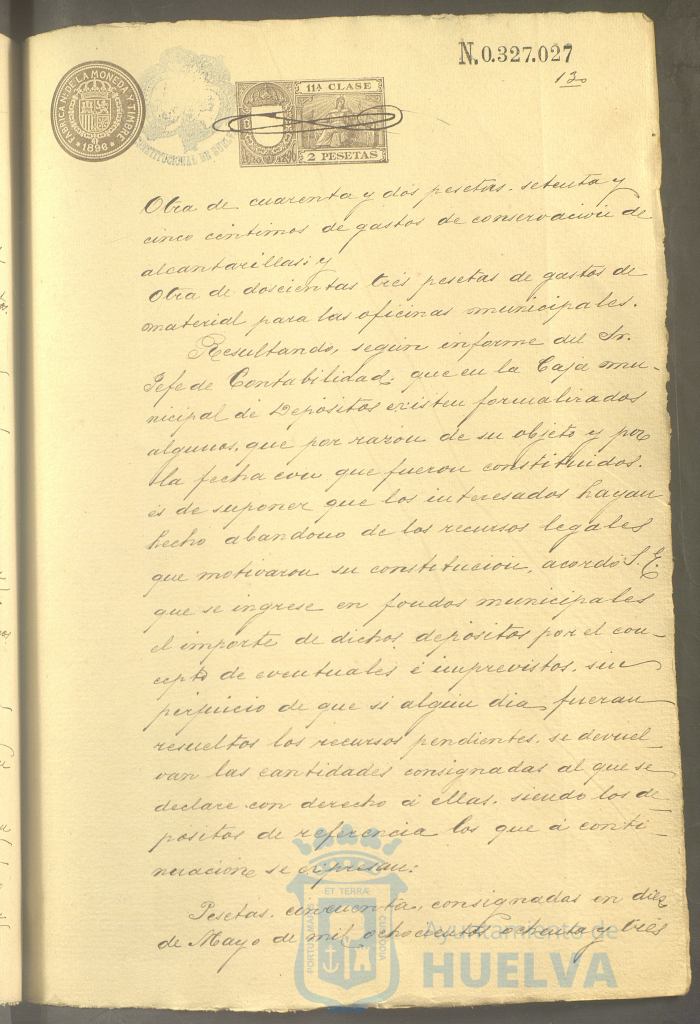 N. 0.327.027
130
FÁBRICA Nal. DE LA MONEDA Y TIMBRE
* 1896 *
11ª CLASE
2 PESETAS
Otra de cuarenta y dos pesetas, setenta y
cinco céntimos de gastos de conservación de
alcantarillas; y
Otra de doscientas tres pesetas de gastos de
material para las oficinas municipales.
Resultando, según informe del Sr.
Jefe de Contabilidad, que en la Caja mu-
nicipal de Depósitos existen formalizados
algunos, que por razón de su objeto y por
la fecha con que fueron constituidos,
es de suponer que los interesados hayan
hecho abandono de los recursos legales
que motivaron su constitución, acordó S. E.
que se ingrese en fondos municipales
el importe de dichos depósitos por el con-
cepto de eventuales é imprevistos, sin
perjuicio de que si algún día fueran
resueltos los recursos pendientes, se devuel-
van las cantidades consignadas al que se
declare con derecho á ellas, siendo los de-
pósitos de referencia los que á conti-
nuación se expresan:
Pesetas, cincuenta, consignadas en diez
de Mayo de mil ochocientos ochenta y tres
PORTUS MARIS
ET TERRÆ
CUSTODIA
Ayuntamiento de
HUELVA